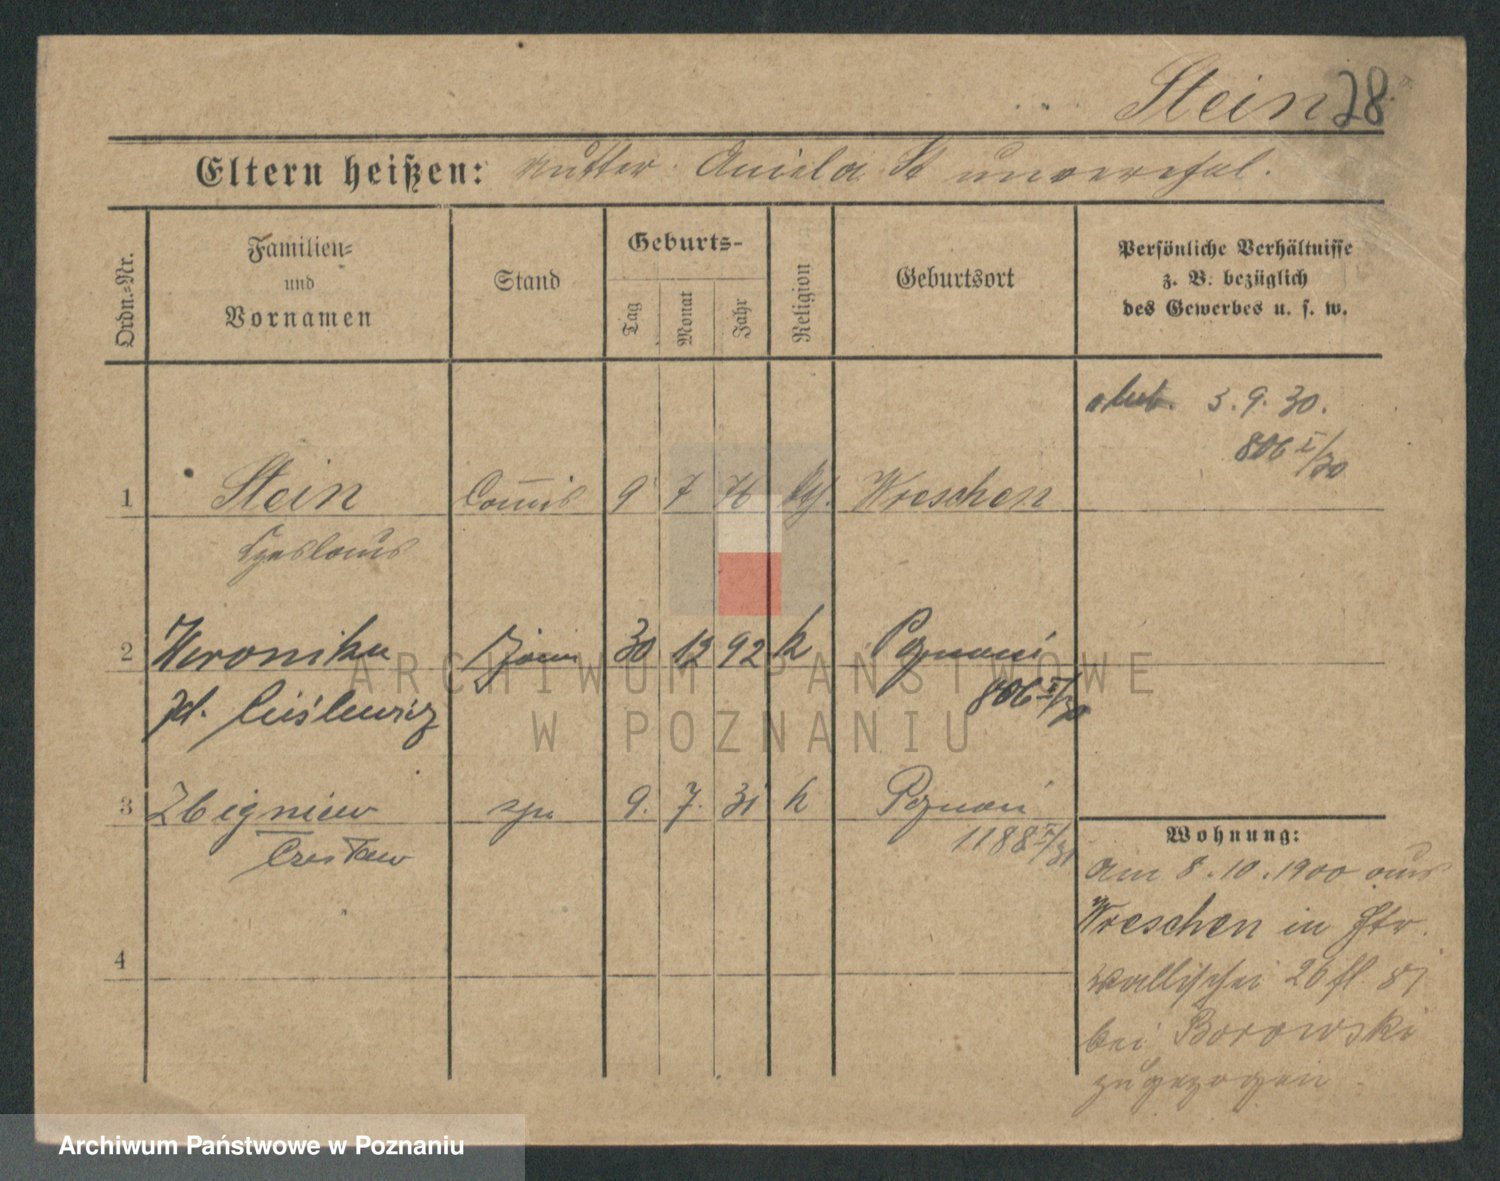 Stein 28
Eltern heißen: Mutter Aniela St unverehel.
Ordn.-Nr.
Familien-
und
Vornamen
Stand
Geburts-
Tag
Monat
Jahr
Religion
Geburtsort
Persönliche Verhältnisse
z. B. bezüglich
des Gewerbes u. s. w.
3. 9. 30.
806 I/30
1 Stein Commis 9 7 76 Wreschen
Czeslaus
2 Weronika żona 30 12 92 k Poznań
zd. Cieślewicz 806 I/30
3 Zbigniew syn 9. 7. 31 k Poznań
Czesław 1188 I/31
4
Wohnung:
am 8.10.1900 aus
Wreschen in Str.
Wallischei 26
bei Borowski
zugezogen
ARCHIWUM PAŃSTWOWE
W POZNANIU
Archiwum Państwowe w Poznaniu